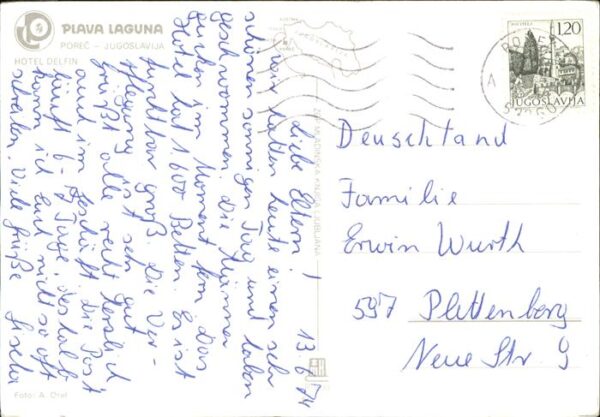 PLAVA LAGUNA
POREČ – JUGOSLAVIJA
HOTEL DELFIN
1,20
JUGOSLAVIJA
13.6.74
Liebe Eltern!
wir hatten heute einen sehr
schönen sonnigen Tag und haben
geschwommen. Die Männer
gucken im Moment fern. Das
Hotel hat 1600 Betten. Es ist
furchtbar groß. Die Ver-
pflegung ist sehr gut.
Grüßt alle recht herzlich
auch im Geschäft. Die Post
läuft 6-8 Tage, deshalb
kann ich Euch nicht so oft
schreiben. Viele Grüße Gisela
Deuschland
Familie
Erwin Wurth
597 Plettenberg
Neue Str 9
MLADINSKA KNJIGA LJUBLJANA
Foto: A.